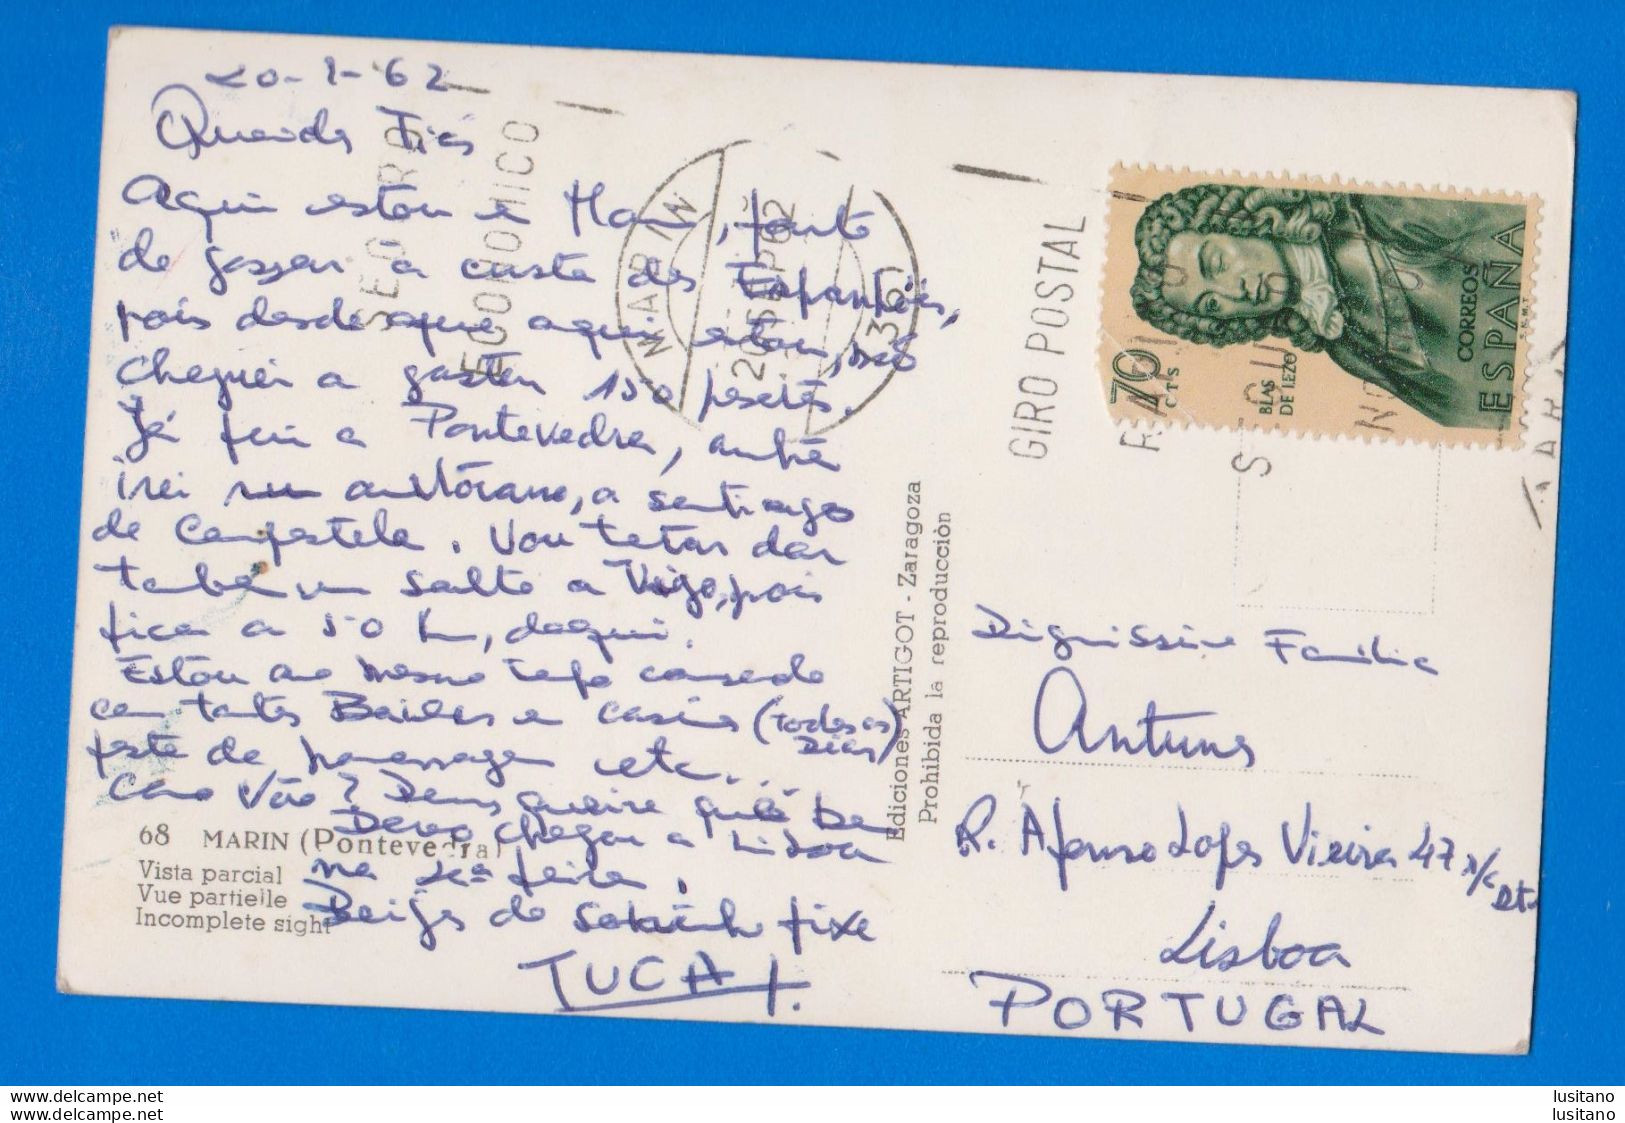 20-1-62
Querida Tias
Aqui estou e Marin, farto
de gozar à custa dos Espanhóis,
pois desde que aqui estou, não
cheguei a gastar 150 pesetas.
Já fui a Pontevedra, 
irei a Santiago
de Compostela. Vou tentar dar
também um salto a Vigo, pois
fica a 50 km, daqui.
Estou ao mesmo tempo cansado
com tantos Bailes e casino (todos os
dias)
festa de homenagem etc...
Como Vão? Deus queira que bem
Devo chegar a Lisboa
na feira.
Beijos do sobrinho fixe
TUCA
68 MARIN (Pontevedra)
Vista parcial
Vue partielle
Incomplete sight
Ediciones ARTIGOT - Zaragoza
Prohibida la reproducciòn
SEGURO
ECONOMICO
MARIN
20 SEP 62
GIRO POSTAL
70 CTS
BLAS
DE LEZO
CORREOS
ESPAÑA
F.N.M.T.
Dignissima Familia
Antunes
R. Afonso Lopes Vieira 47 r/c
Dt.
Lisboa
PORTUGAL
lusitano
lusitano
www.delcampe.net
www.delcampe.net